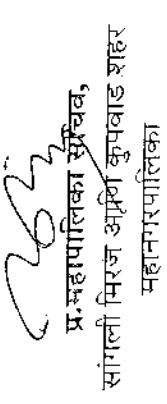 प्र.महापालिका सचिव,
सांगली मिरज आणि कुपवाड शहर
महानगरपालिका